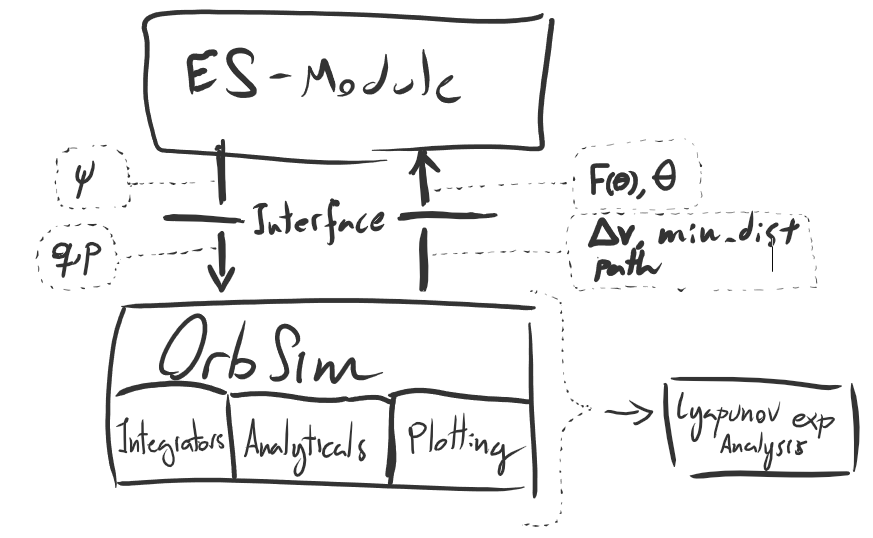 ES-Module
ψ
F(θ), θ
Interface
q,p
Δv, min_dist
path
OrbSim
Integrators
Analyticals
Plotting
Lyapunov exp
Analysis